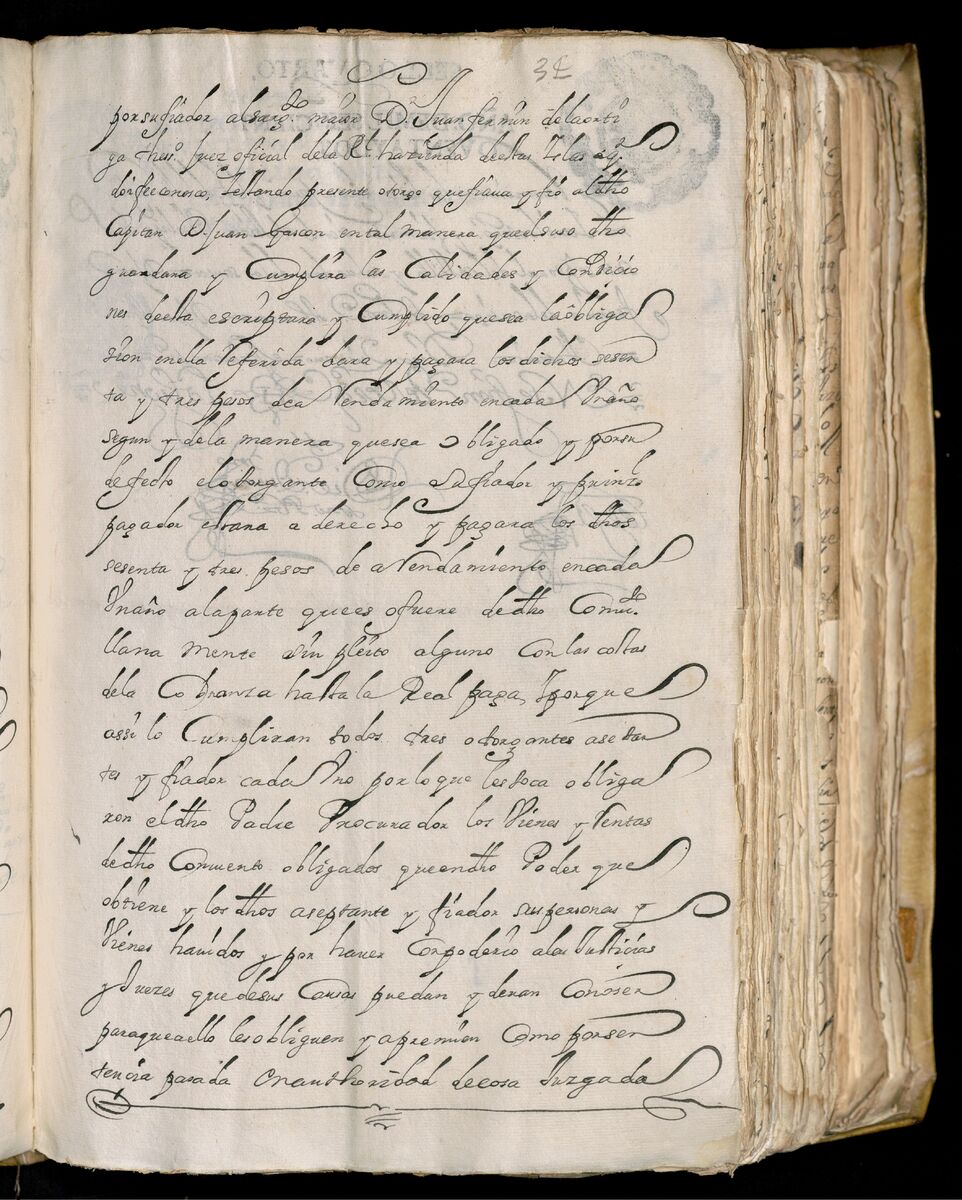 34
por su fiador al sargto maior Dn Juan fermin de la orti
ga theso Juez oficial de la Rl hazienda destas Yslas aqn
doi fee conosco, Y estando presente otorgo que fiaua y fio al dho
Capitan D. Juan Gascon en tal manera que el suso dho
guardara y Cumplira las Calidades y Condicio
nes desta escriptura y Cumplido que sea la obliga
sion en ella Referida dara y pagara los dichos sesen
ta y tres pesos de a Rendamiento en cada Vn año
segun y de la manera que sea obligado y por su
defecto el otorgante Como su fiador y prinzl
pagador estara a derecho y pagara los dhos
sesenta y tres pesos de a Rendamiento en cada
Vn año a la parte que es o fuere de dho Conuto
llana mente sin pleito alguno Con las costas
de la Cobranza hasta la Real paga, Y porque
assi lo Cumpliran todos tres otorgantes aseptan
tes y fiador cada Vno por lo que les toca obliga
ron el dho Padre Procurador los Vienes y Rentas
de dho Conuento obligados que en dho Poder que
obtiene y los dhos aseptante y fiador sus personas y
Vienes hauidos y por hauer Con poderio a las Justicias
y Juezes que de sus Causas puedan y deuan Conoser
para que a ello les obliguen y apremien Como por sen
tencia pasada en authoridad de cosa Juzgada